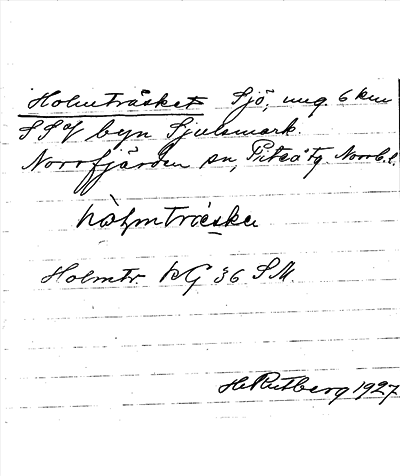 Holmträsket Sjö, ung. 6 km
SSV byn Sjulsmark.
Norrfjärden sn, Piteå tg. Norrb. l.
hòlmtrǽskə
Holmtr. KG 36 SM
H. Rutberg 1927